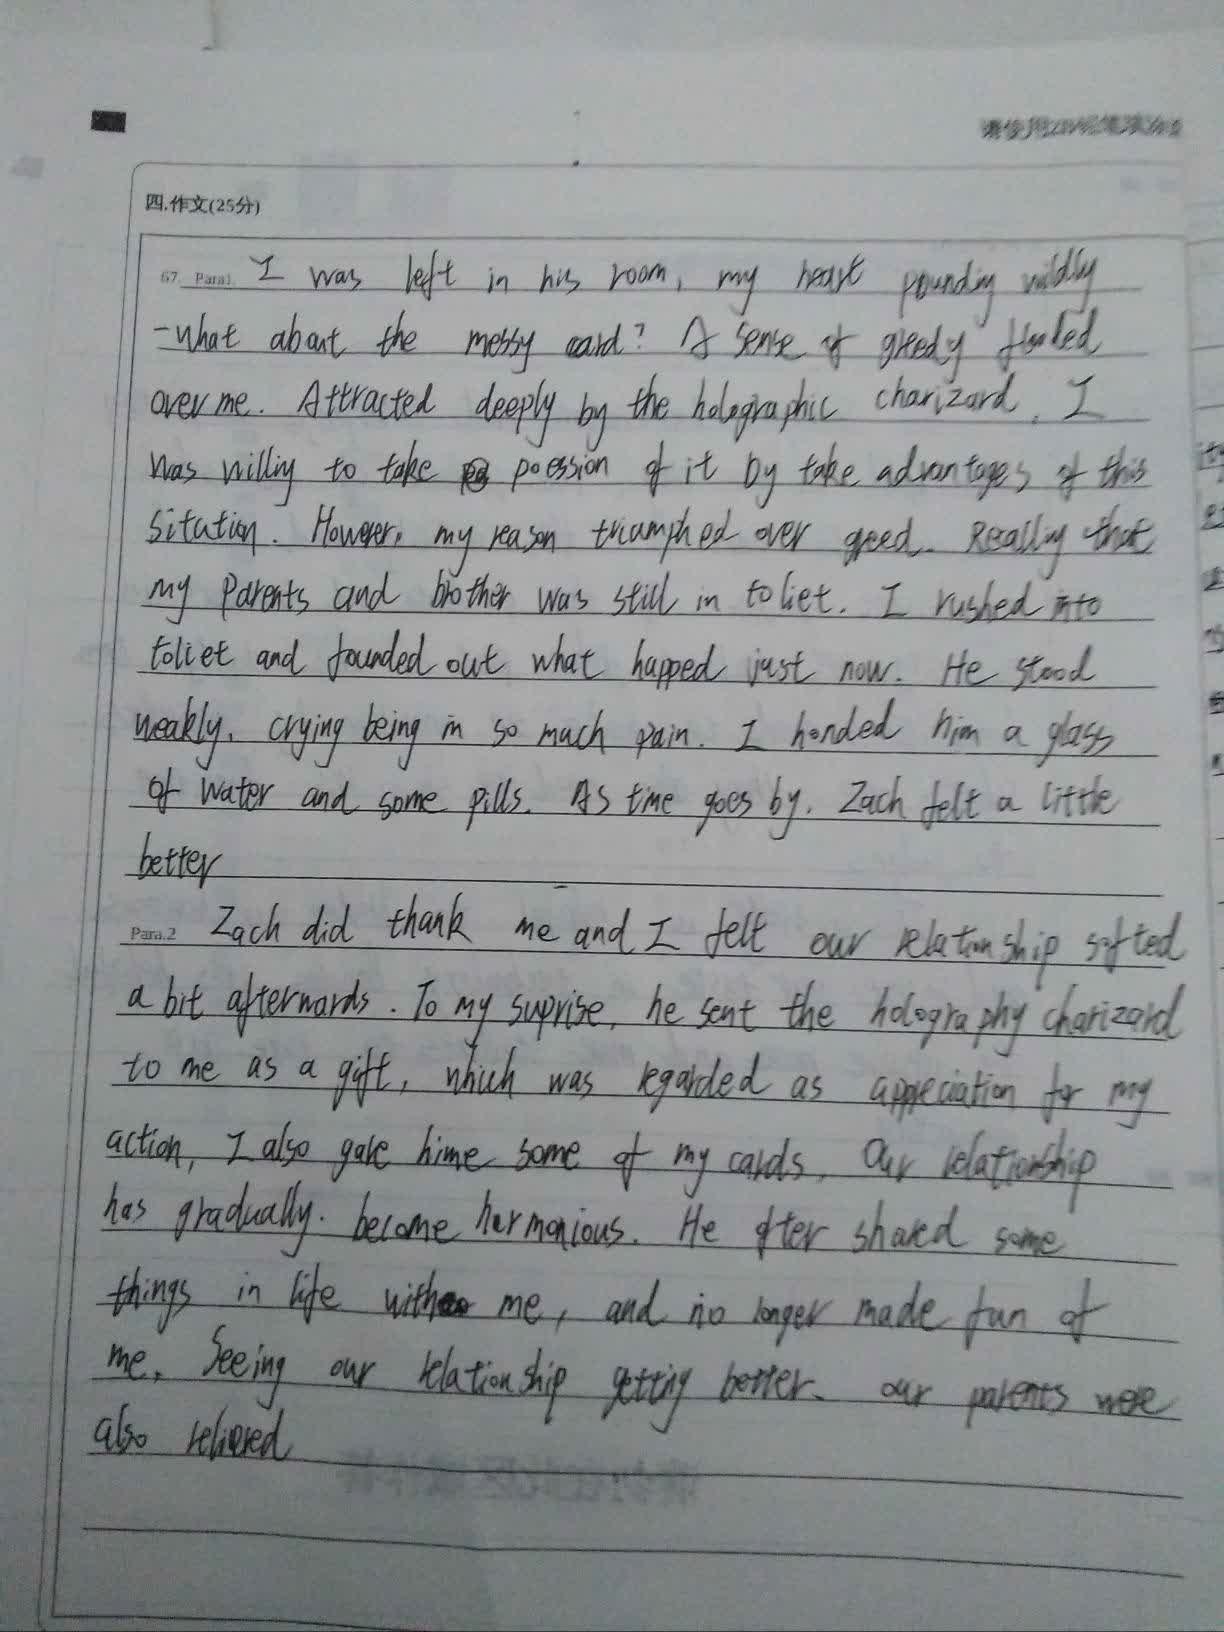 四.作文(25分)
67. Para1. I was left in his room, my heart pounding wildly
-what about the messy card? A sense of greedy flooded
over me. Attracted deeply by the holographic charizard, I
was willing to take poession of it by take advantages of this
sitution. However, my reason triumphed over greed. Really that
my parents and brother was still in toliet. I rushed into
toliet and founded out what happed just now. He stood
weakly, crying being in so mach pain. I handed him a glass
of water and some pills. As time goes by, Zach felt a little
better
Para.2 Zach did thank me and I felt our relationship softed
a bit afterwards. To my suprise, he sent the holography charizard
to me as a gift, which was regarded as appreciation for my
action, I also gave hime some of my cards. Our relationship
has gradually. become harmonious. He ofter shared some
things in life with me, and no longer made fun of
me. Seeing our relationship getting better. our parents were
also relieved